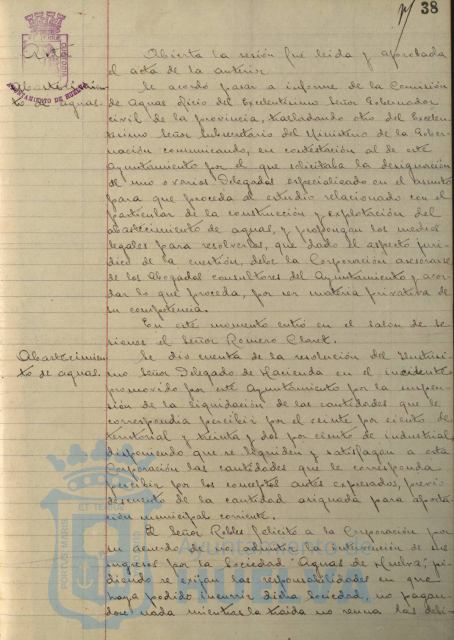 38
Acta
Abierta la sesión fue leida y aprobada
el acta de la anterior
Abastecimien-
to de aguas.
Se acordo pasar a informe de la Comisión
de Aguas oficio del Excelentisimo Señor Gobernador
civil de la provincia, trasladando otro del Excelen-
tisimo Señor Subsecretario del Ministerio de la Gober-
nación comunicando, en contestación al de este
Ayuntamiento por el que solicitaba la designación
de uno o varios Delegados especializado en el asunto
para que proceda al estudio relacionado con el
particular de la construcción y explotación del
abastecimiento de aguas, y propongan los medios
legales para resolverlos, que dado el aspecto juri-
dico de la cuestión, debe la Corporación asesorarse
de los Abogados consultores del Ayuntamiento y acor-
dar lo que proceda, por ser materia privativa de
su competencia.
En este momento entró en el salon de se-
siones el Señor Romero Claret.
Abastecimien-
to de aguas.
Se dio cuenta de la resolución del Ilustrisi-
mo Señor Delegado de Hacienda en el incidente
promovido por este Ayuntamiento por la suspen-
sión de la liquidación de las cantidades que le
correspondia percibir por el veinte por ciento de
territorial y treinta y dos por ciento de industrial,
disponiendo que se liquiden y satisfagan a esta
Corporación las cantidades que le corresponda
percibir por los conceptos antes expresados, previo
descuento de la cantidad asignada para aporta-
ción municipal corriente.
El Señor Robles felicitó a la Corporación por
su acuerdo de no admitir la intervención de sus
ingresos por la Sociedad "Aguas de Huelva", pi-
diendo se exijan las responsabilidades en que
haya podido incurrir dicha Sociedad, no pagan-
dose nada mientras la traida no reuna las debi-
AYUNTAMIENTO DE HUELVA
PORTUS MARIS
ET TERRAE
CUSTODIA
Ayuntamiento de
HUELVA